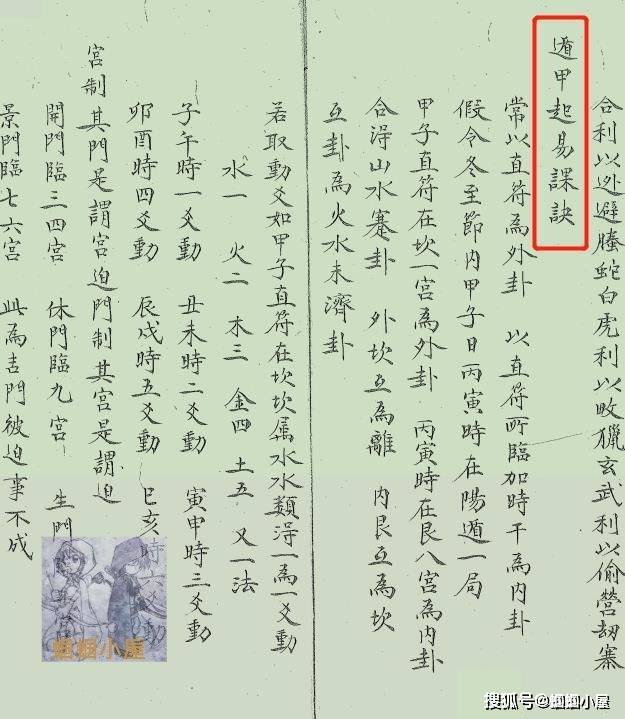 合利以逃避螣蛇白虎利以畋獵玄武利以偷營刼寨
遁甲起易課訣
常以直符為外卦 以直符所臨加時干為内卦
假令冬至節内甲子日丙寅時在陽遁一局
甲子直符在坎一宮為外卦 丙寅時在艮八宮為内卦
合淂山水蹇卦 外坎互為離 内艮互為坎
互卦為火水未濟卦
若取動爻如甲子直符在坎坎属水水類淂一為一爻動
水一 火二 木三 金四 土五 又一法
子午時一爻動 丑未時二爻動 寅申時三爻動
卯酉時四爻動 辰戌時五爻動 巳亥時六爻動
宮制其門是謂宮迫門制其宮是謂迫
開門臨三四宮 休門臨九宮 生門
景門臨七六宮 此為吉門被迫事不成
蝈蝈小屋
搜狐号@蝈蝈小屋